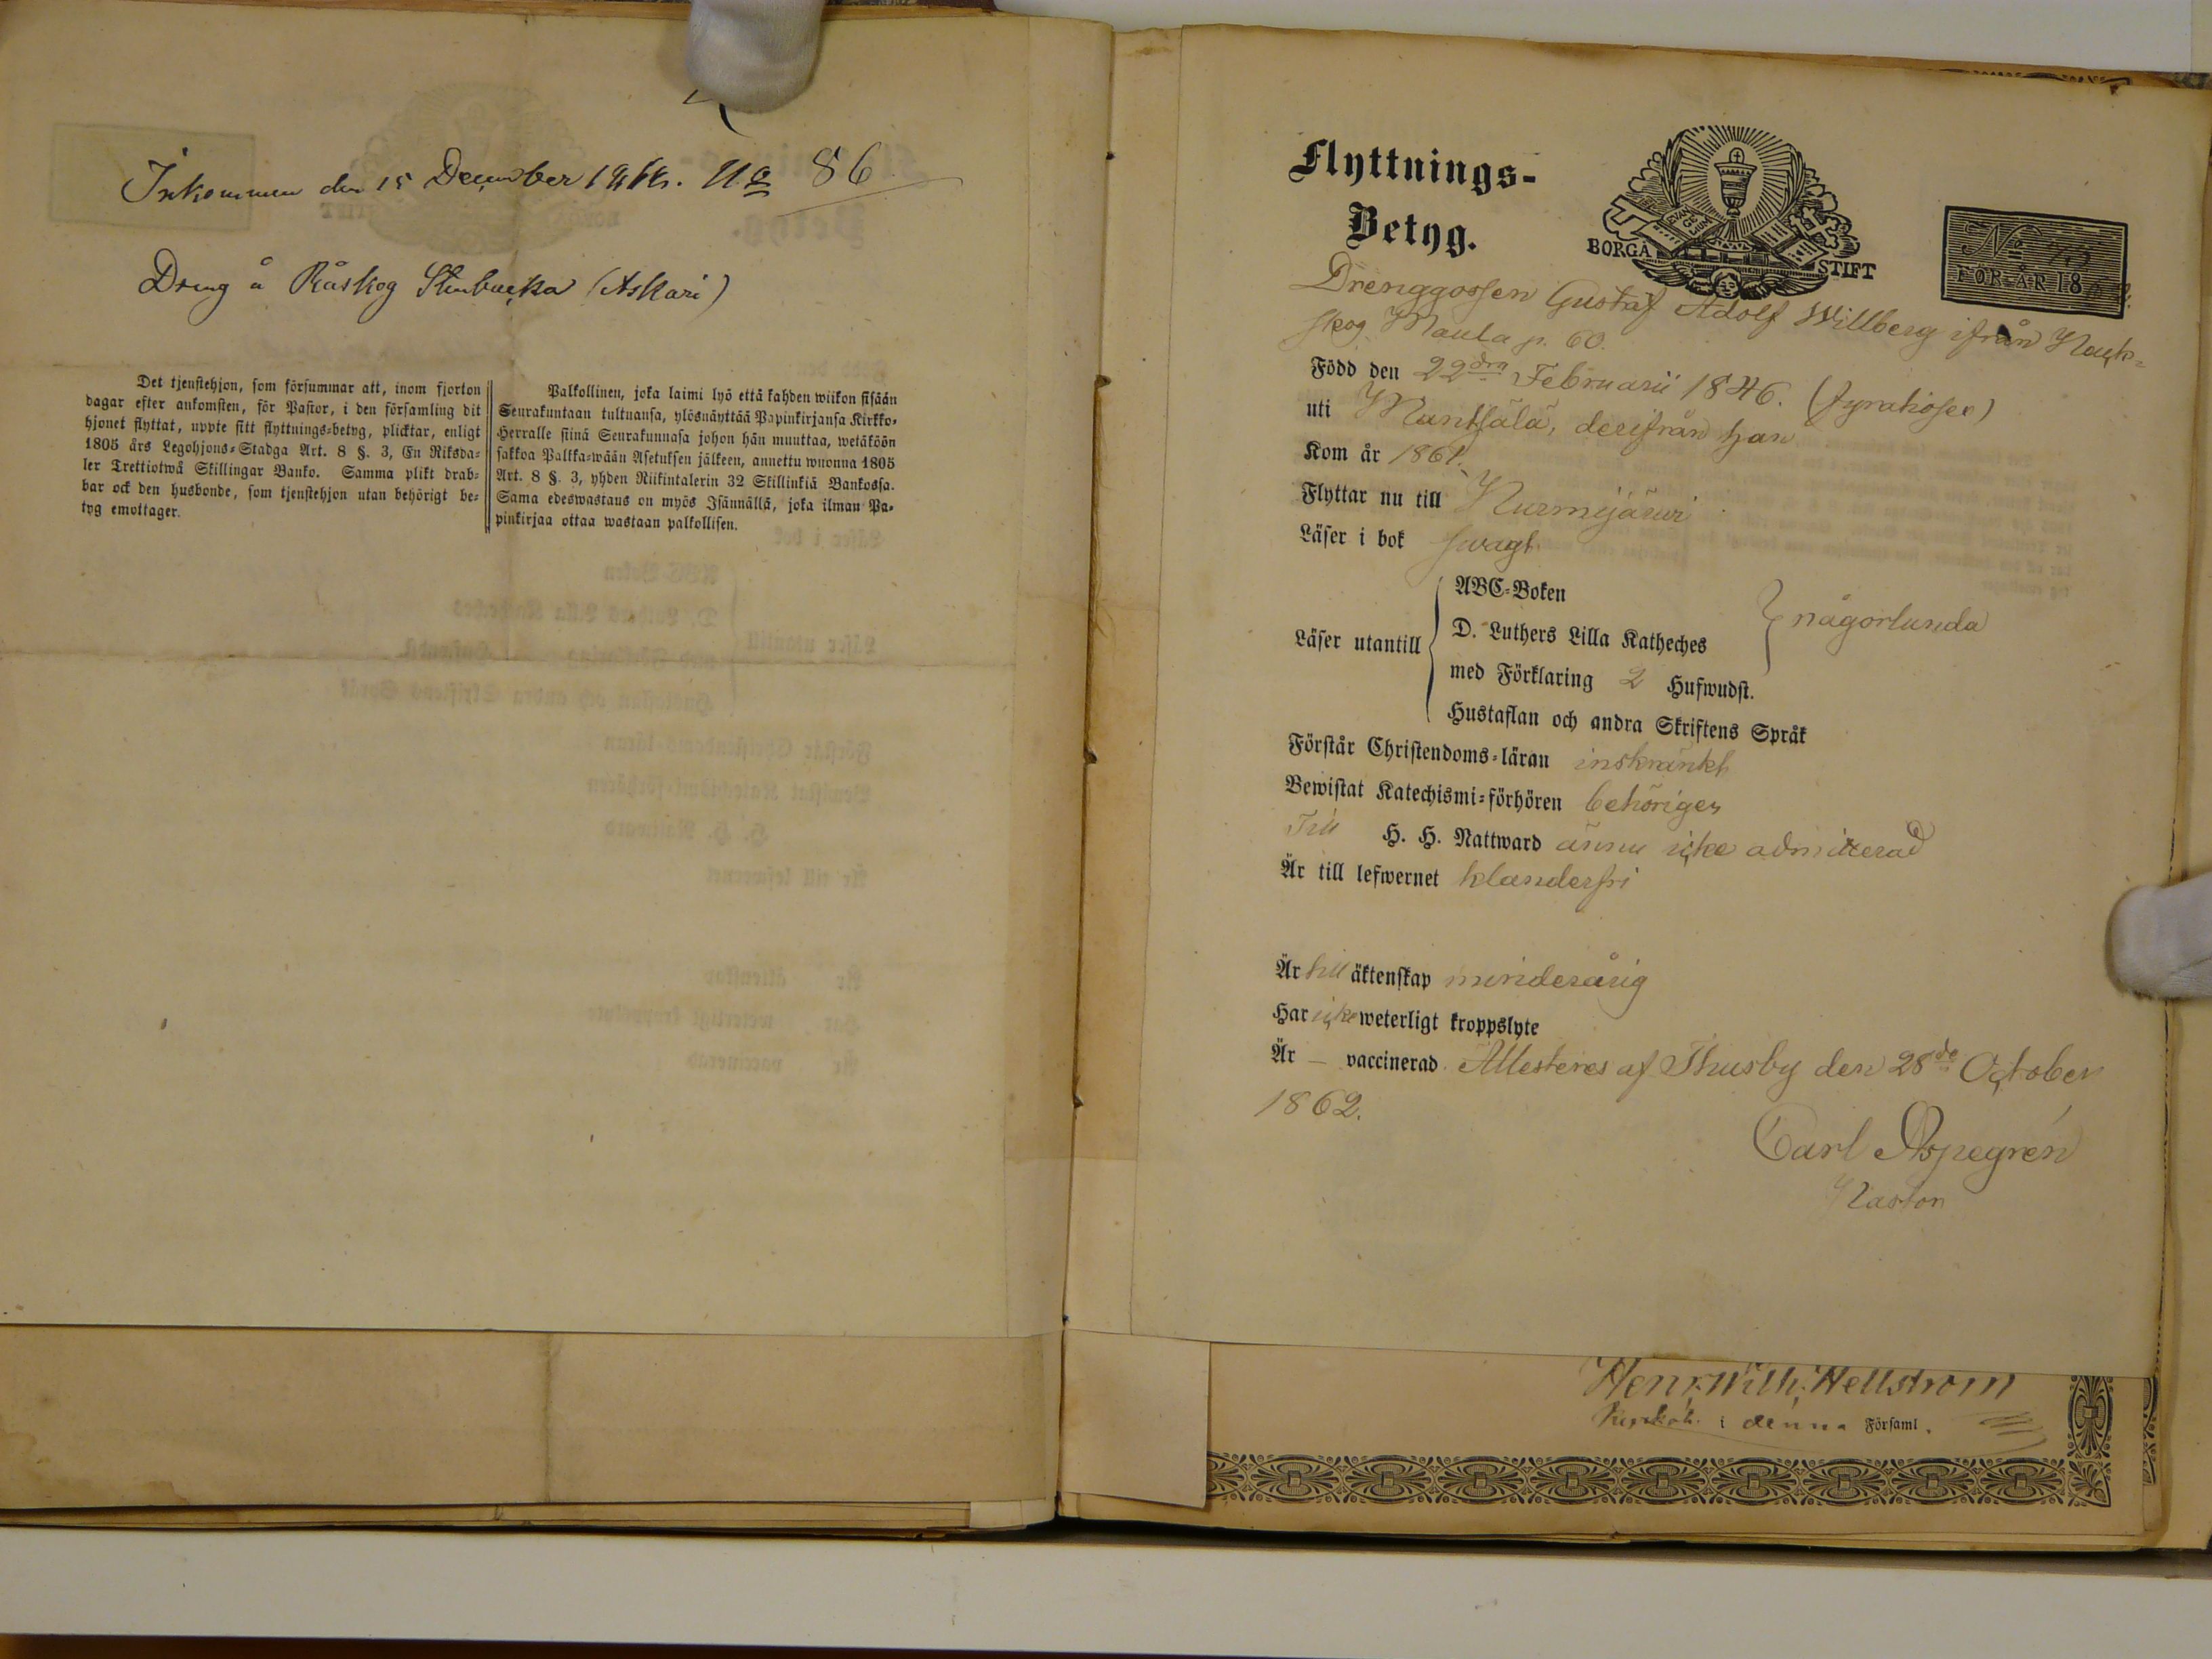 Inkommen den 15 December 1862. No 86
Dreng å Råskog Stenbacka (Askari)
Det tjenstehjon, som försummar att, inom fjorton
dagar efter ankomsten, för Pastor, i den församling dit
hjonet flyttat, uppte sitt flyttnings-betyg, plicktar, enligt
1805 års Legohjons-Stadga Art. 8 §. 3, En Riksda-
ler Trettiotwå Skillingar Banko. Samma plikt drab-
bar ock den husbonde, som tjenstehjon utan behörigt be-
tyg emottager.
Palkollinen, joka laimi lyö että kahden wiikon sisään
Seurakuntaan tultuansa, ylösnäyttää Papinkirjansa Kirkko-
Herralle siinä Seurakunnasa johon hän muuttaa, wetäköön
sakkoa Palkka-wään Asetuksen jälkeen, annettu wuonna 1805
Art. 8 §. 3, yhden Riikintalerin 32 Skillinkiä Bankossa.
Sama edeswastaus on myös Isännällä, joka ilman Pa-
pinkirjaa ottaa wastaan palkollisen.
Flyttnings-
Betyg.
EVAN
GE
LIUM
BORGÅ STIFT
No
FÖR ÅR 18
Drenggossen Gustaf Adolf Willberg ifrån
skog Maula p. 60.
Född den 22dra Februarii 1846.
uti Mäntsälä, derifrån han
Kom år 1861.
Flyttar nu till Nurmijärvi
Läser i bok swagt
ABC-Boken
Läser utantill D. Luthers Lilla Katheches någorlunda
med Förklaring 2 Hufwudst.
Hustaflan och andra Skriftens Språk
Förstår Christendoms-läran inskränkt
Bewistat Katechismi-förhören behörigen
Till H. H. Nattward ännu icke admitterad
Är till lefwernet klanderfri
Är till äktenskap minderårig
Har icke weterligt kroppslyte
Är – vaccinerad. Attesteres af Thusby den 28de October
1862.
Carl Aspegrén
Pastor
Henr. Wilh. Hellström
i denna Församl.